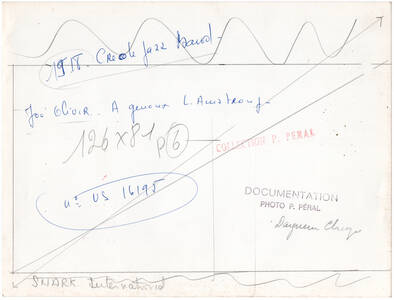 1918. Creole Jazz Band.
Joe Olivir. A genoux L. Amstrong.
126 x 81
p 6
COLLECTION P. PÉRAL
n° US 16195
DOCUMENTATION
PHOTO P. PÉRAL
SNARK International